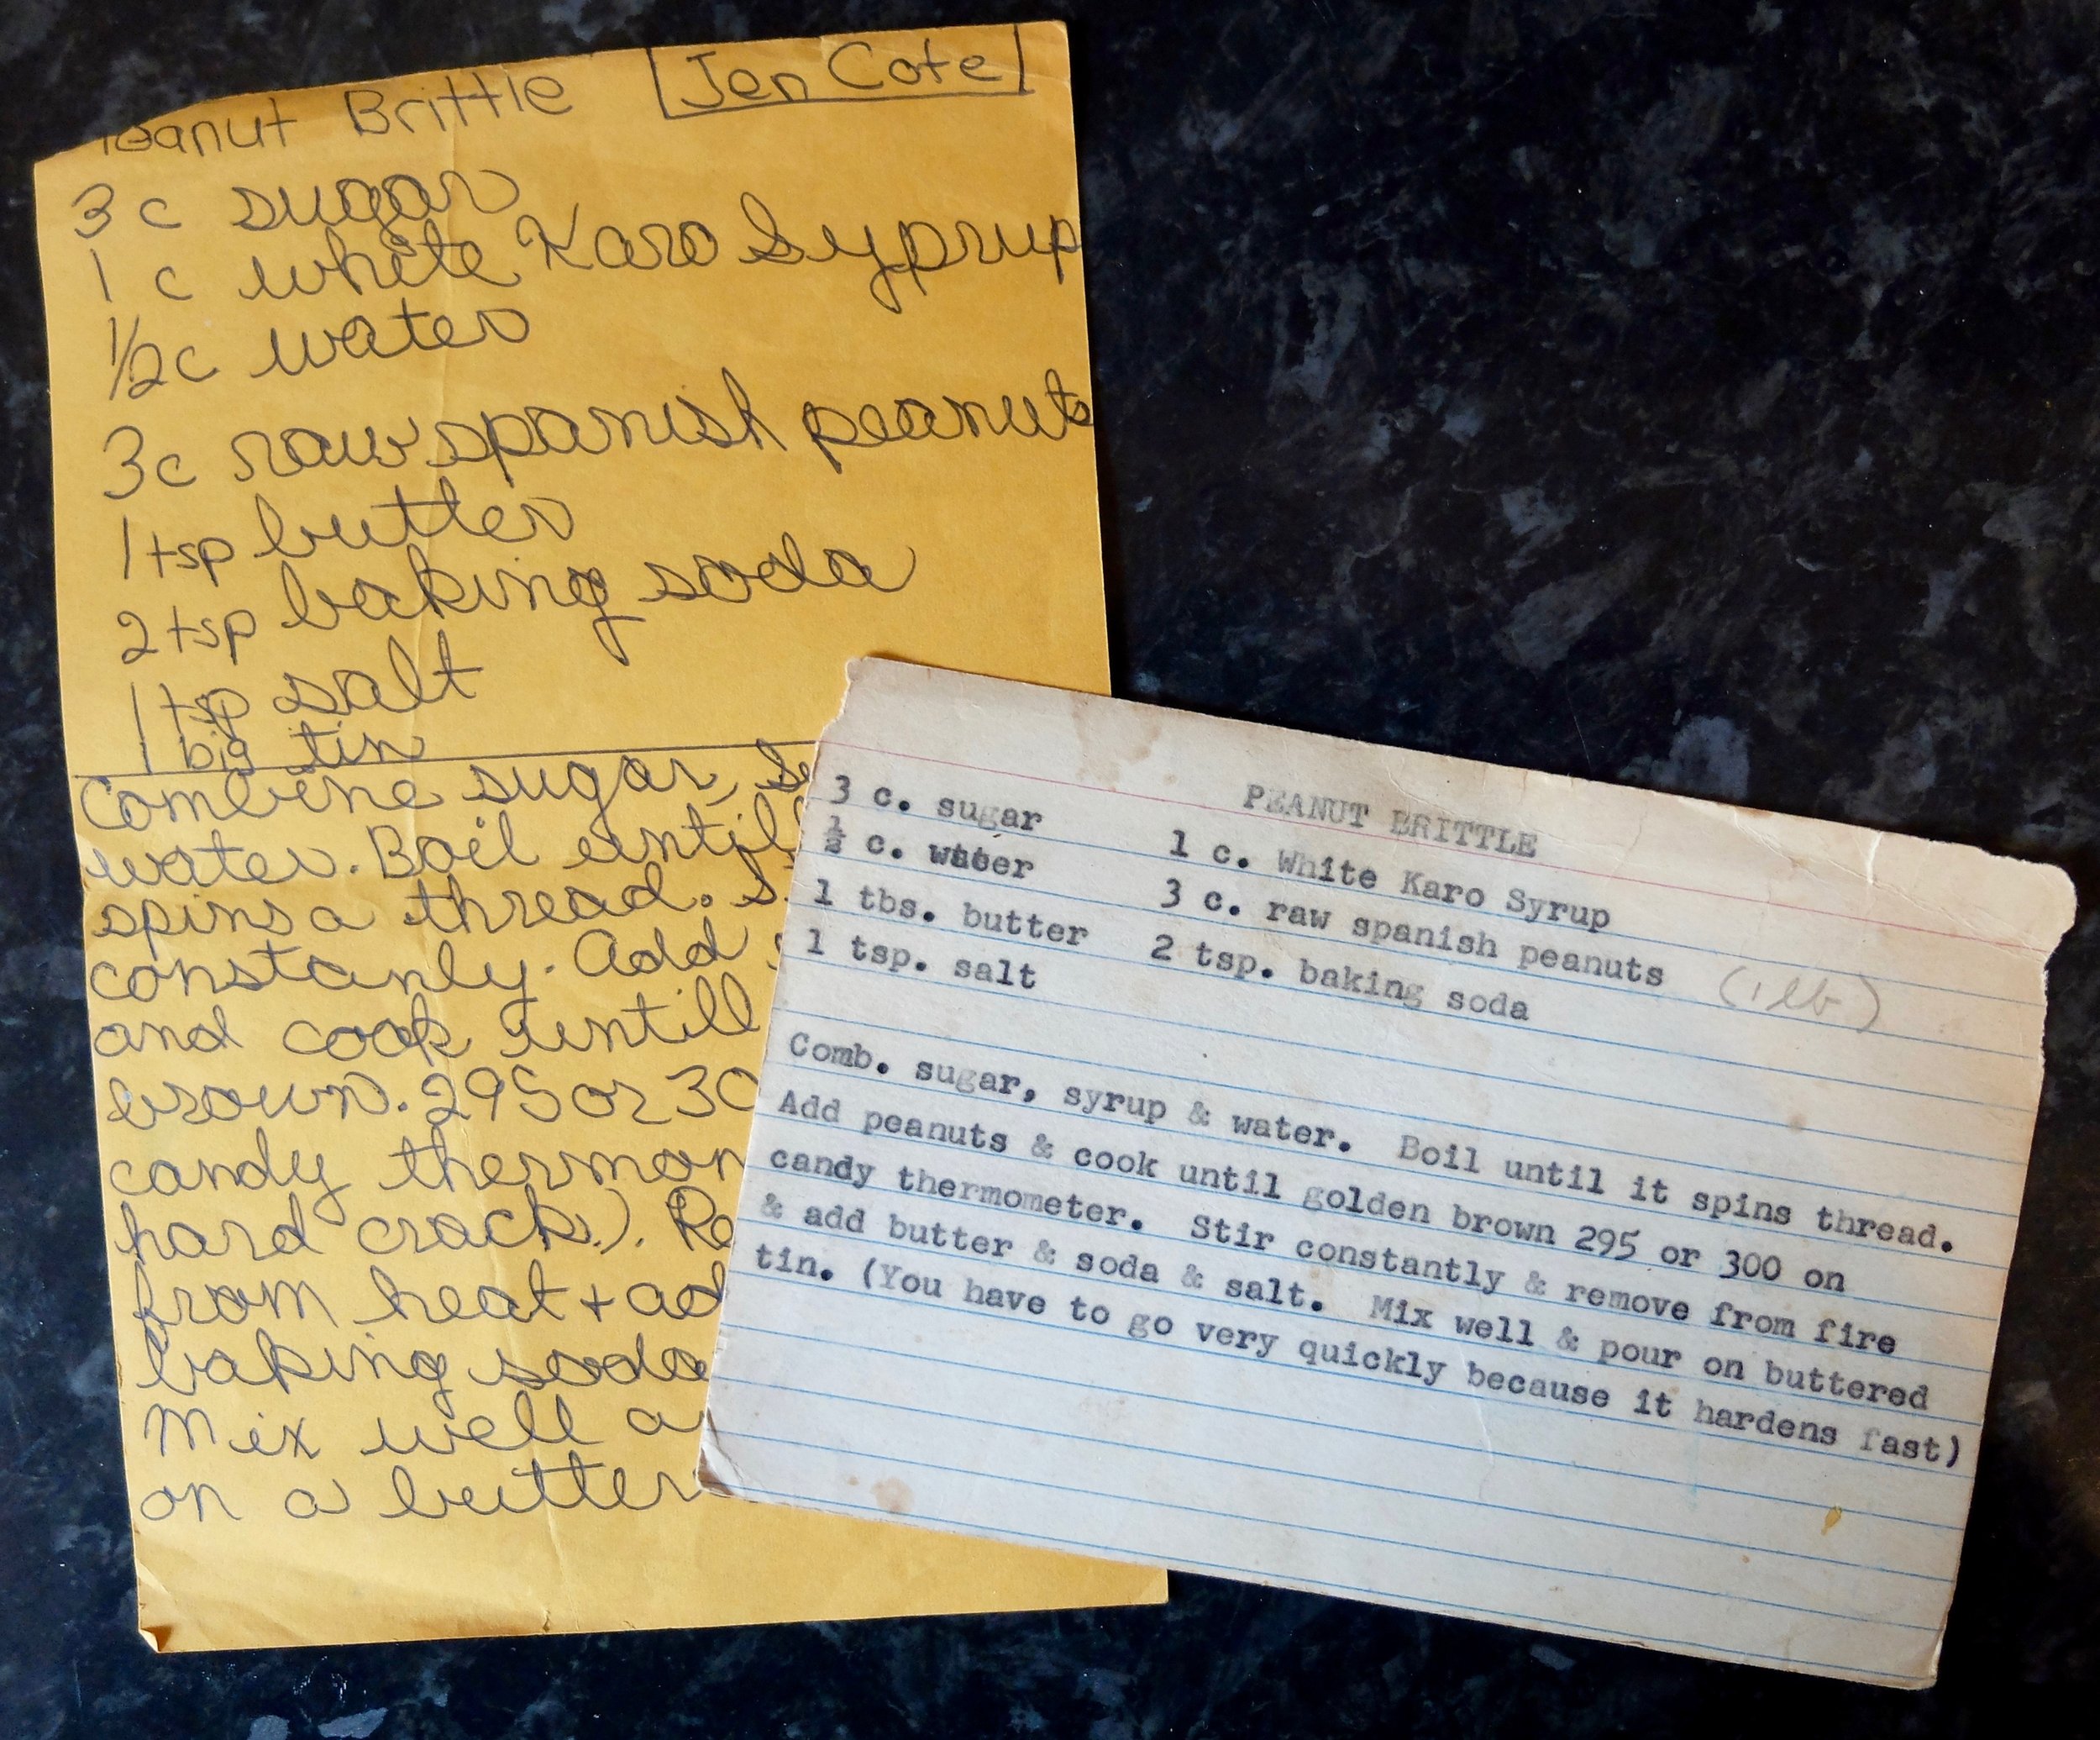 Peanut Brittle Jen Cote
3 c sugar
1 c white Karo Syprup
1/2 c water
3c raw spanish peanuts
1 tsp butter
2 tsp baking soda
1 tsp salt
1 big tin
Combine sugar,
water. Boil until
spins a thread.
constanly. Add
and cook untill
brown. 295 or 30
candy thermom
hard crack). Re
from heat + ad
baking soda
Mix well a
on a butter
PEANUT BRITTLE
3 c. sugar 1 c. White Karo Syrup
½ c. water 3 c. raw spanish peanuts (1 lb)
1 tbs. butter 2 tsp. baking soda
1 tsp. salt
Comb. sugar, syrup & water. Boil until it spins thread.
Add peanuts & cook until golden brown 295 or 300 on
candy thermometer. Stir constantly & remove from fire
& add butter & soda & salt. Mix well & pour on buttered
tin. (You have to go very quickly because it hardens fast)